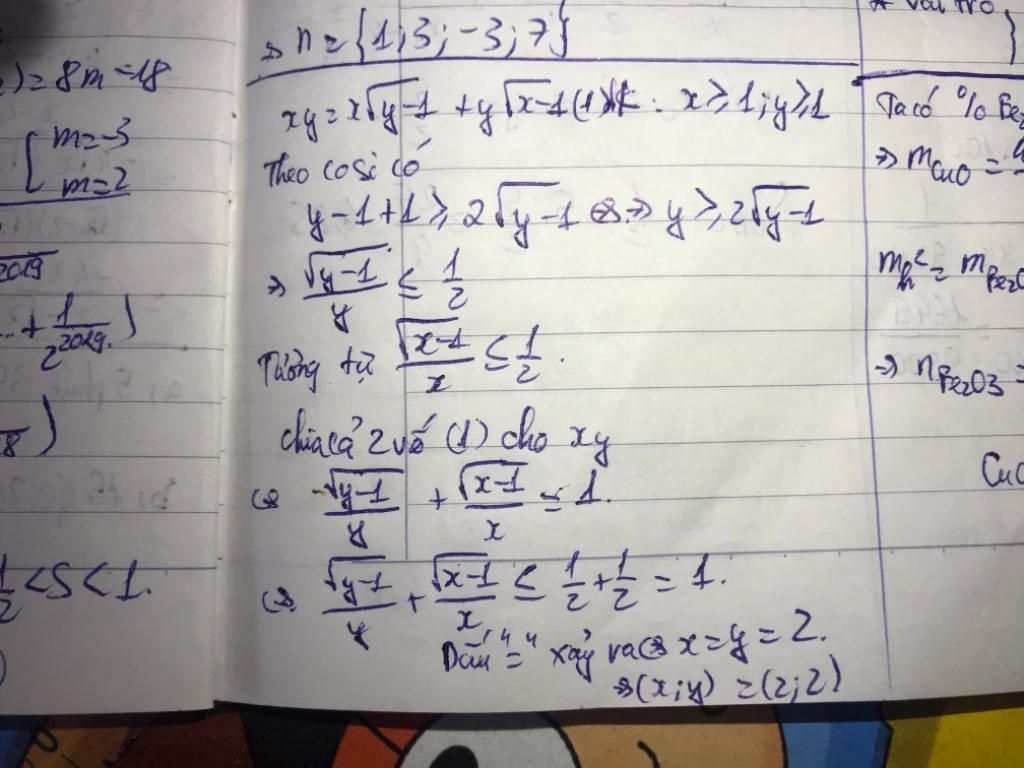 ) = 8m - 18
[ m = -3
m = 2
2019
... + 1/2^2019. )
)
1/2 < S < 1.
⇒ n = {1; 3; -3; 7}
xy = x√(y-1) + y√(x-1) (1) đk: x ≥ 1; y ≥ 1
Theo cosi có
y - 1 + 1 ≥ 2√(y-1) ⇔ ⇒ y ≥ 2√(y-1)
⇒ √(y-1)/y ≤ 1/2
Tương tự √(x-1)/x ≤ 1/2.
chia cả 2 vế (1) cho xy
⇔ √(y-1)/y + √(x-1)/x ≤ 1.
⇔ √(y-1)/y + √(x-1)/x ≤ 1/2 + 1/2 = 1.
Dấu "=" xảy ra ⇔ x = y = 2.
⇒ (x; y) = (2; 2)
* vai trò
Ta có %
⇒ mCuO =
⇒